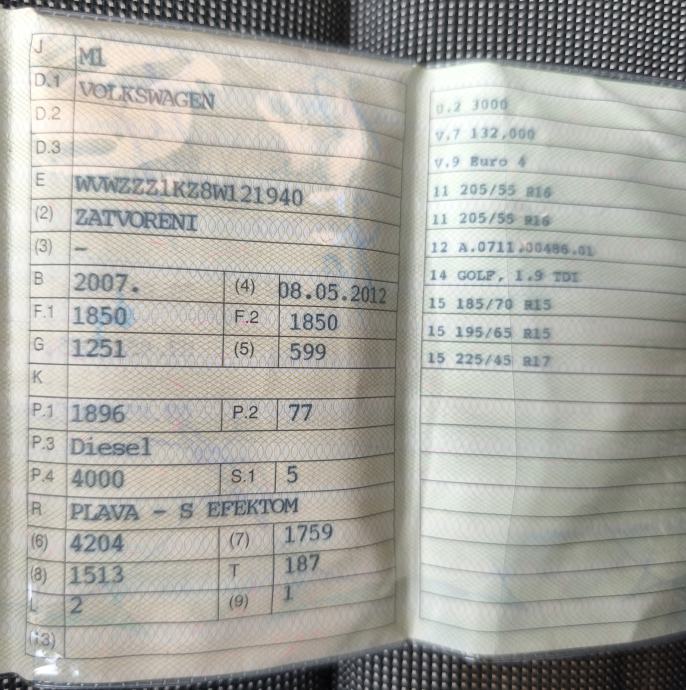 J M1
D.1 VOLKSWAGEN
D.2
D.3
E WVWZZZ1KZ8W121940
(2) ZATVORENI
(3) –
B 2007. (4) 08.05.2012
F.1 1850 F.2 1850
G 1251 (5) 599
K
P.1 1896 P.2 77
P.3 Diesel
P.4 4000 S.1 5
R PLAVA - S EFEKTOM
(6) 4204 (7) 1759
(8) 1513 T 187
L 2 (9) 1
(13)
U.2 3000
V.7 132,000
V.9 Euro 4
11 205/55 R16
11 205/55 R16
12 A.0711.00486.01
14 GOLF, 1.9 TDI
15 185/70 R15
15 195/65 R15
15 225/45 R17